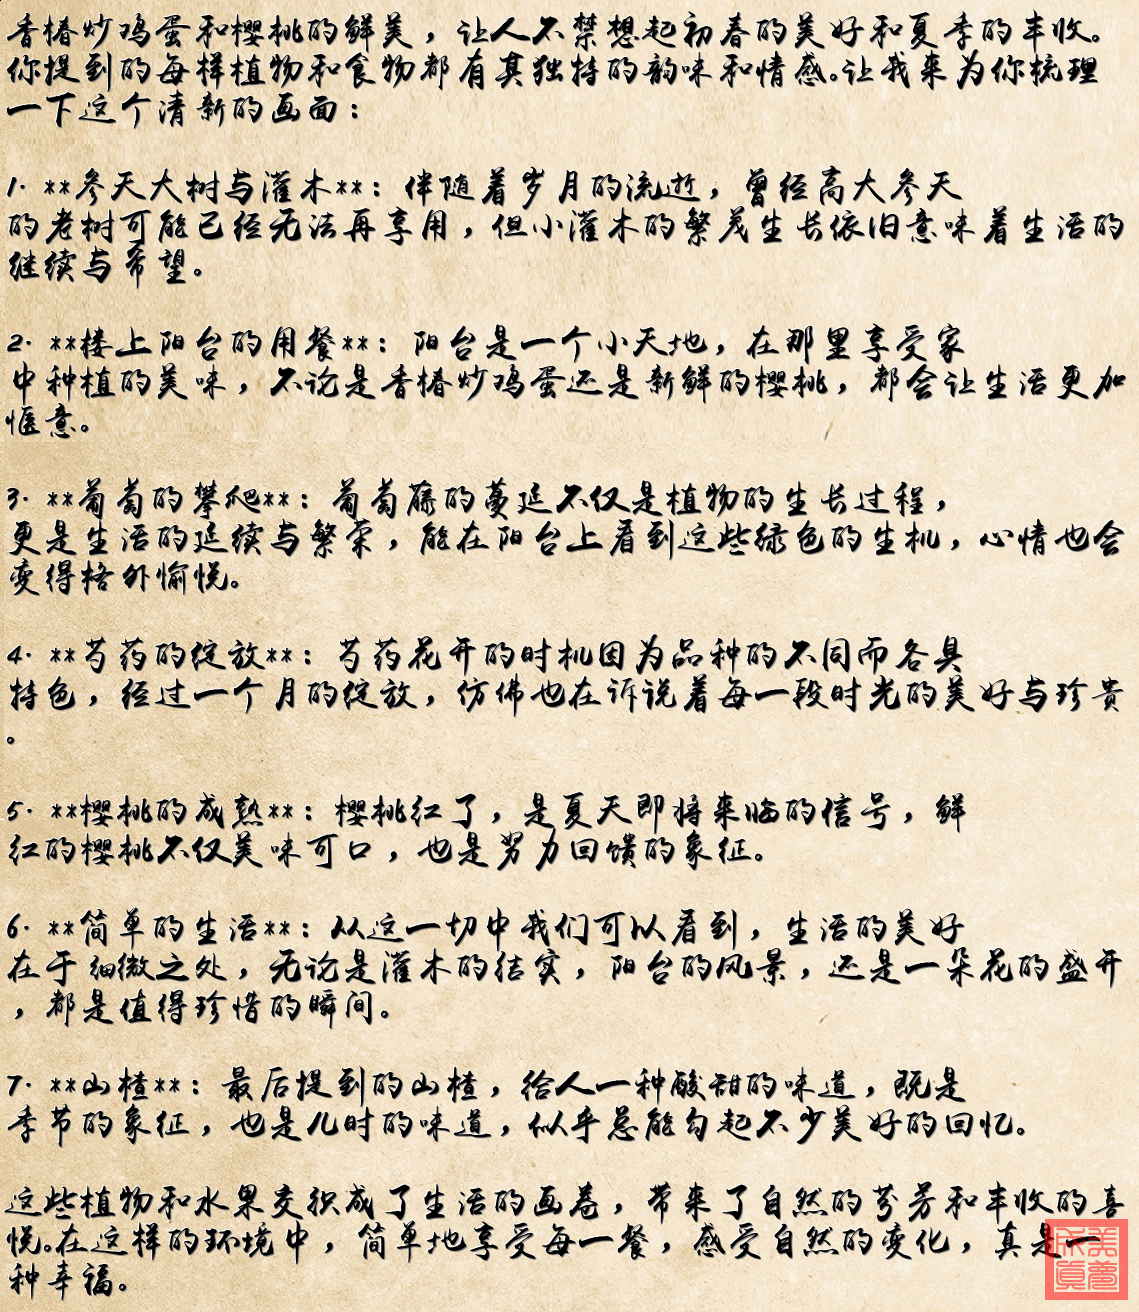 香椿炒鸡蛋和樱桃的鲜美，让人不禁想起初春的美好和夏季的丰收。
你提到的每样植物和食物都有其独特的韵味和情感。让我来为你梳理
一下这个清新的画面：
1. **参天大树与灌木**：伴随着岁月的流逝，曾经高大参天
的老树可能已经无法再享用，但小灌木的繁茂生长依旧意味着生活的
继续与希望。
2. **楼上阳台的用餐**：阳台是一个小天地，在那里享受家
中种植的美味，不论是香椿炒鸡蛋还是新鲜的樱桃，都会让生活更加
惬意。
3. **葡萄的攀爬**：葡萄藤的蔓延不仅是植物的生长过程，
更是生活的延续与繁荣，能在阳台上看到这些绿色的生机，心情也会
变得格外愉悦。
4. **芍药的绽放**：芍药花开的时机因为品种的不同而各具
特色，经过一个月的绽放，仿佛也在诉说着每一段时光的美好与珍贵
。
5. **樱桃的成熟**：樱桃红了，是夏天即将来临的信号，鲜
红的樱桃不仅美味可口，也是努力回馈的象征。
6. **简单的生活**：从这一切中我们可以看到，生活的美好
在于细微之处，无论是灌木的结实，阳台的风景，还是一朵花的盛开
，都是值得珍惜的瞬间。
7. **山楂**：最后提到的山楂，给人一种酸甜的味道，既是
季节的象征，也是儿时的味道，似乎总能勾起不少美好的回忆。
这些植物和水果交织成了生活的画卷，带来了自然的芬芳和丰收的喜
悦。在这样的环境中，简单地享受每一餐，感受自然的变化，真是一
种幸福。
美梦成真